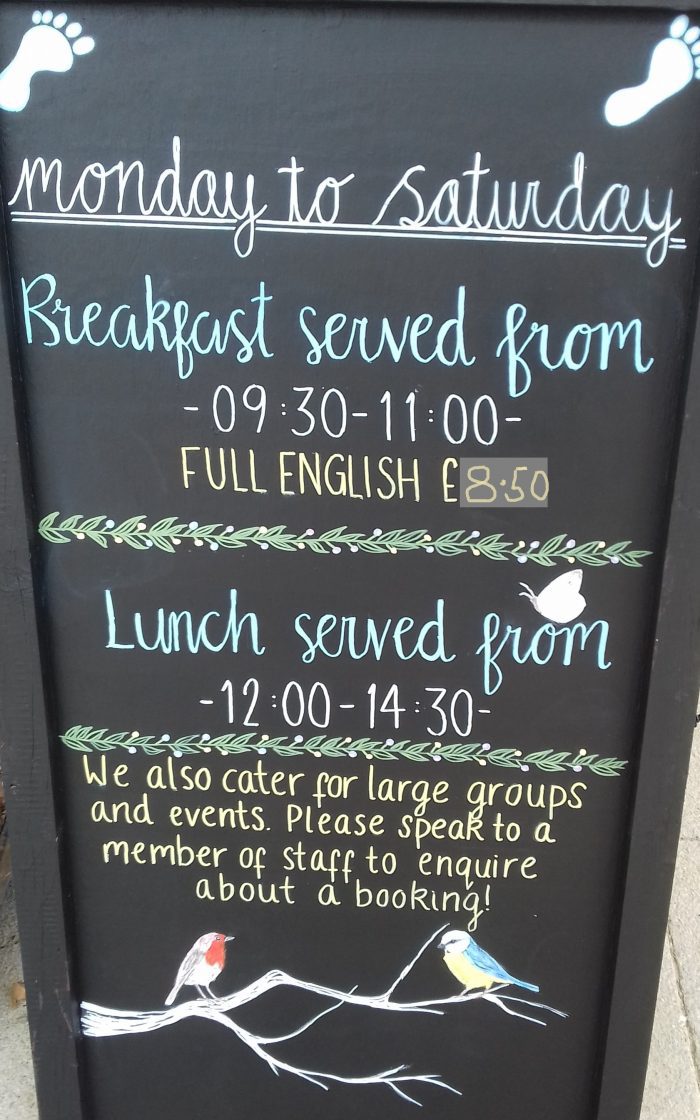 monday to saturday
Breakfast served from
-09:30-11:00-
FULL ENGLISH £8.50
Lunch served from
-12:00-14:30-
We also cater for large groups
and events. Please speak to a
member of staff to enquire
about a booking!